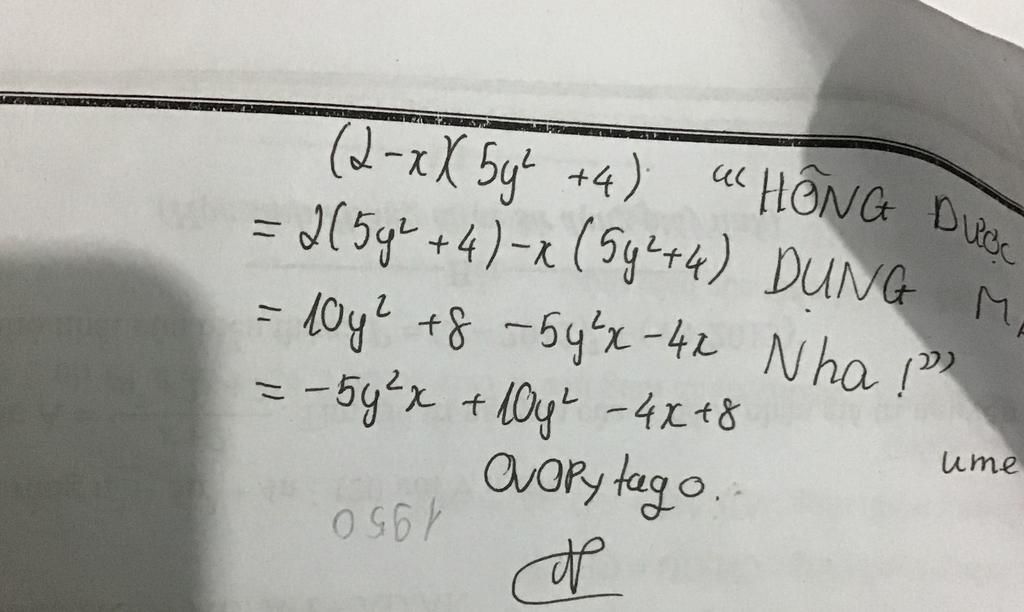 (2-x)(5y² +4)
= 2(5y² +4) - x (5y²+4)
= 10y² +8 -5y²x -4x
= -5y²x +10y² -4x+8
"HÔNG ĐƯỢC
DỤNG
Nha !"
ume
1950